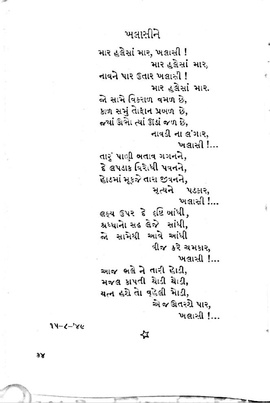 ખલાસીને
માર હલેસાં માર, ખલાસી !
માર હલેસાં માર,
નાવને પાર ઉતાર ખલાસી !
માર હલેસાં માર.
જો સામે વિકરાળ વમળ છે,
કાળ સમું તોફાન પ્રબળ છે,
જ્યાં ઊભો ત્યાં ઊંડાં જળ છે,
નાવડી ના લંગાર,
ખલાસી !...
તારું પાણી બતાવ ગગનને,
દે લપડાક વિરોધી પવનને,
હોડમાં મૂકજે તારા જીવનને,
મૃત્યુને પડકાર,
ખલાસી !...
લક્ષ્ય ઉપર દે દૃષ્ટિ બાંધી,
શ્રદ્ધાનો સઢ લેજે સાંધી,
જો સામેથી આવે આંધી
વીજ કરે ચમકાર,
ખલાસી !...
આજ ભલે ને તારી હોડી,
મજલ કાપતી થોડી થોડી,
યત્ન હશે તો વ્હેલી મોડી,
એ જ ઊતરશે પાર,
ખલાસી !...
૧૫-૮-'૪૯
૩૪